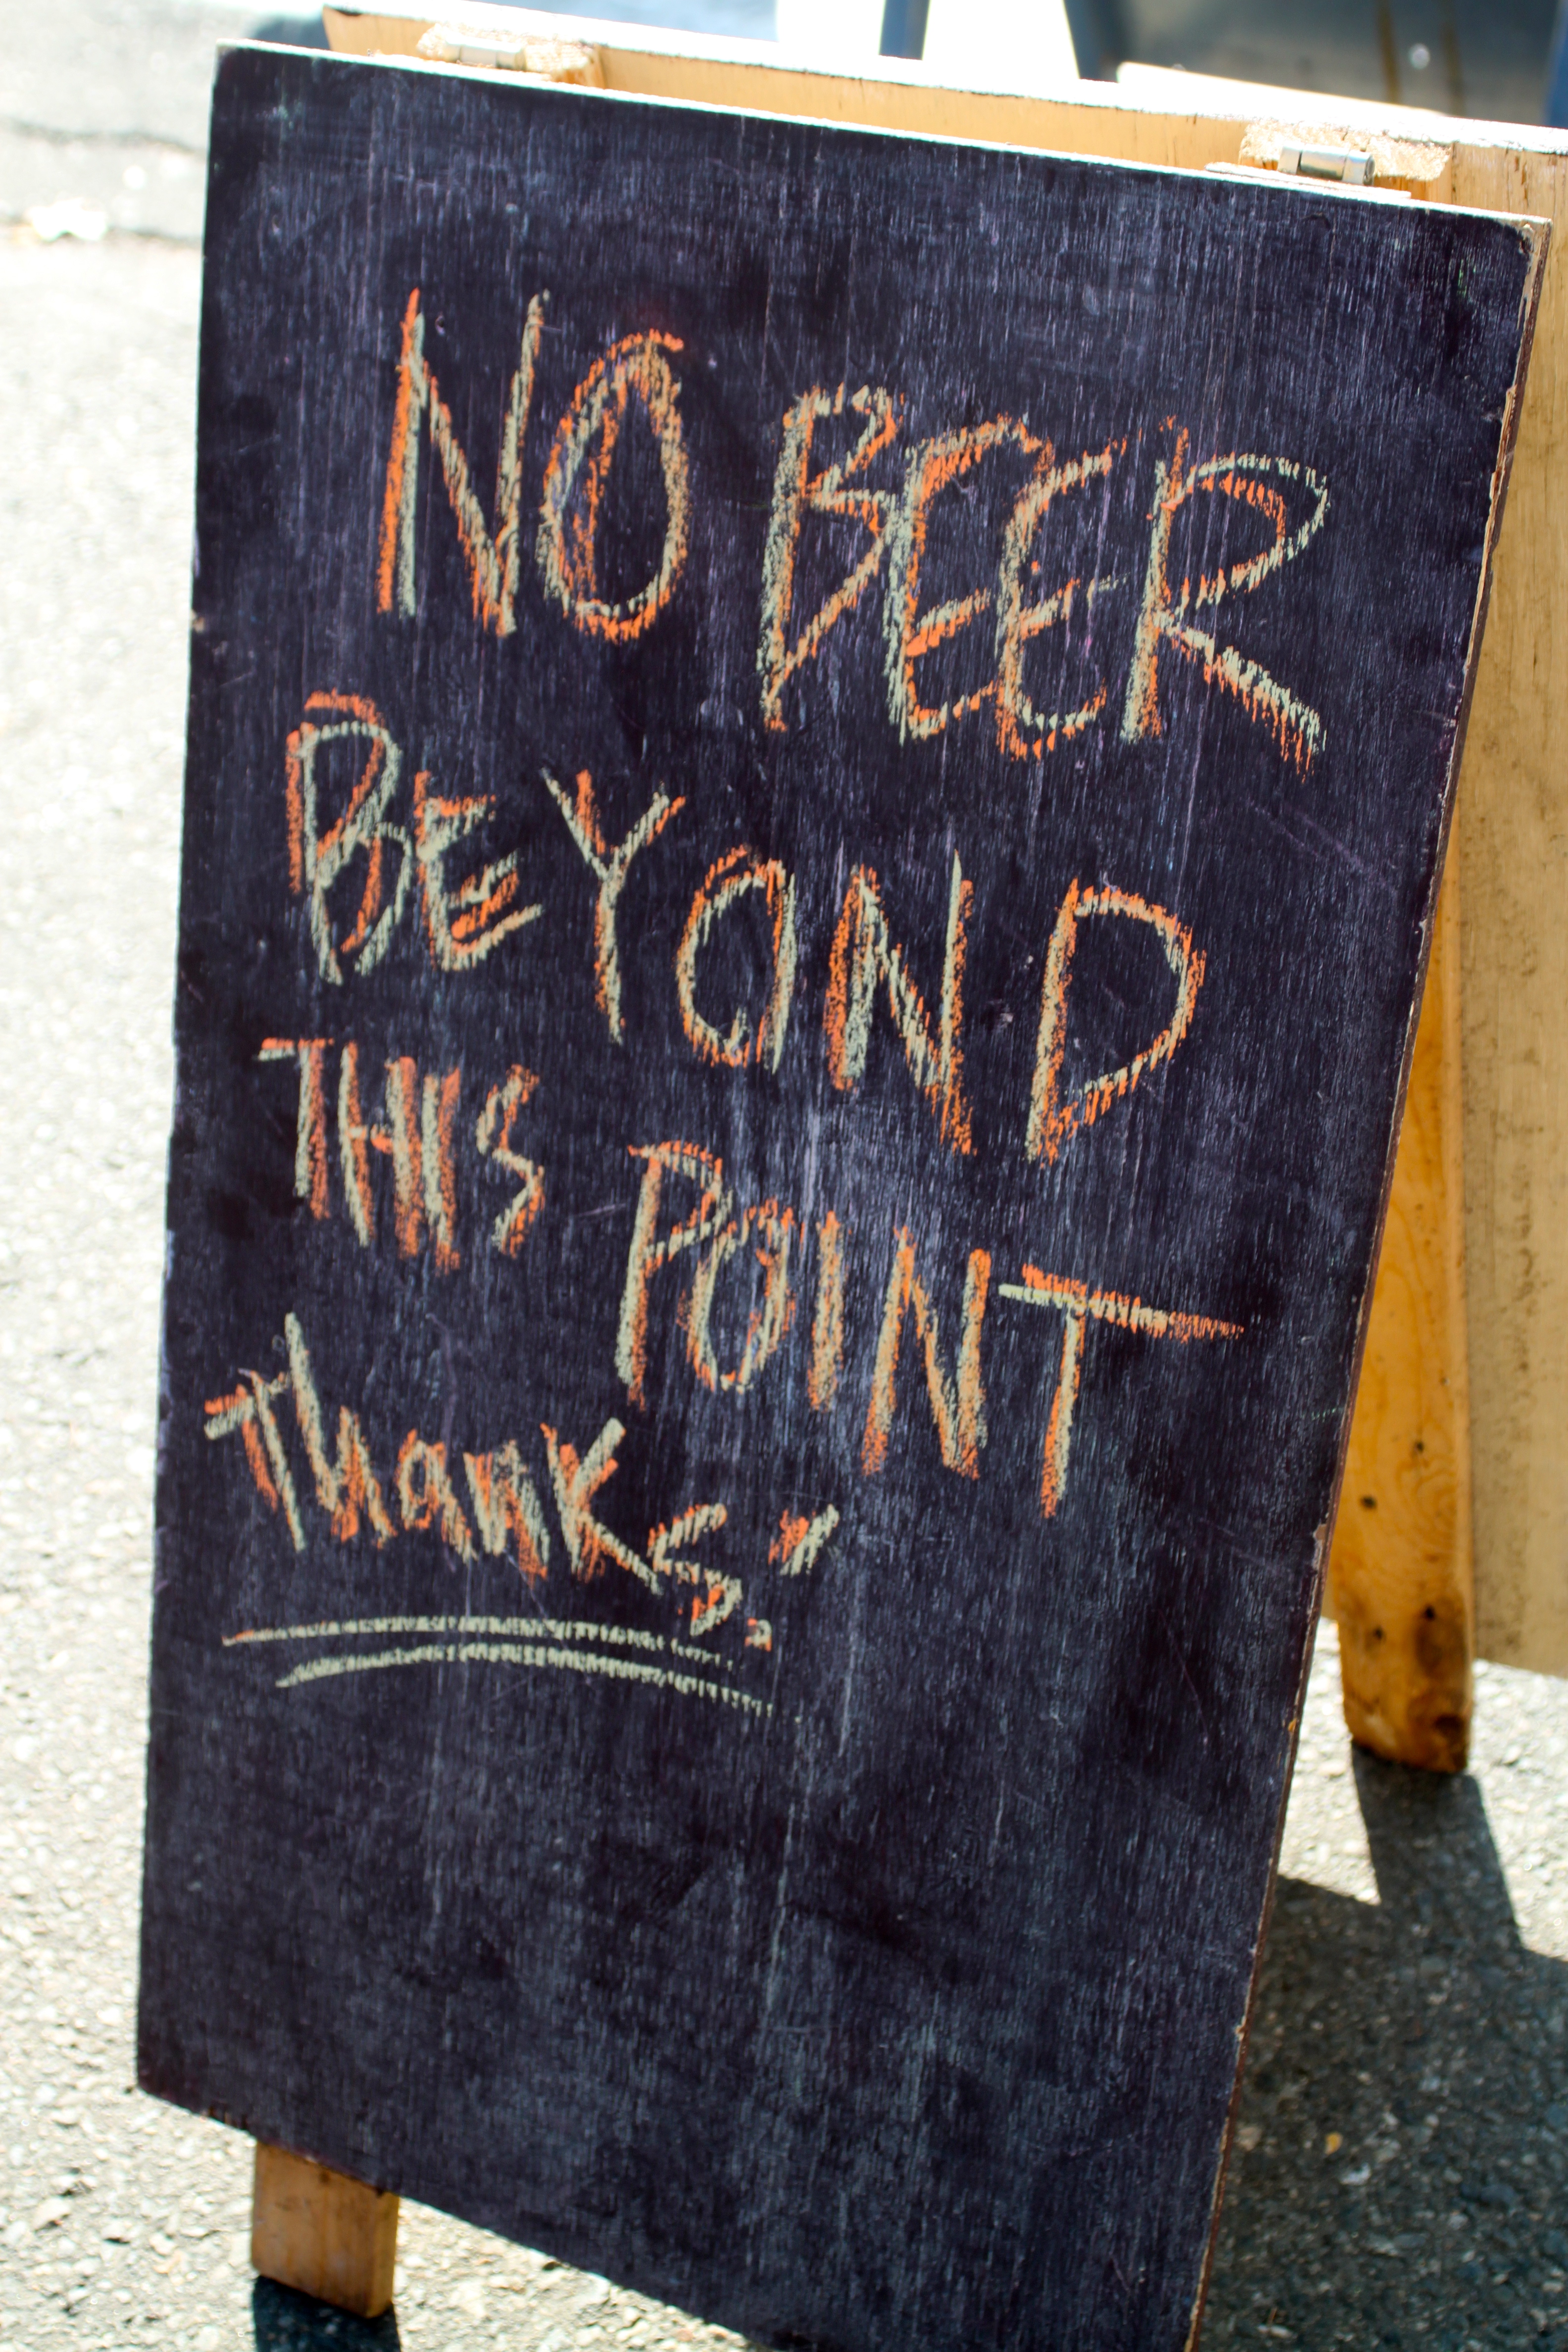 NO BEER
BEYOND
THIS POINT
Thanks."